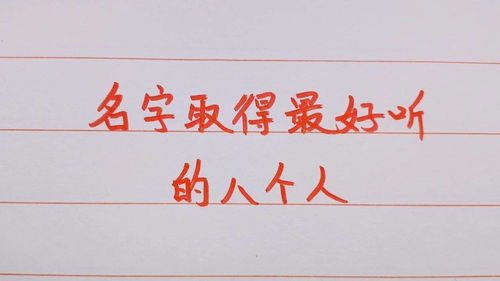 名字取得最好听
的八个人